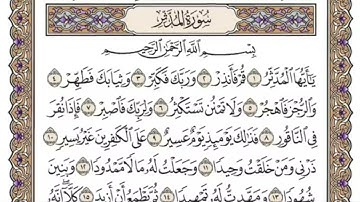 سُورَةُ المُدَّثِّرِ
بِسْمِ ٱللَّهِ ٱلرَّحْمَٰنِ ٱلرَّحِيمِ
يَٰٓأَيُّهَا ٱلْمُدَّثِّرُ ١ قُمْ فَأَنذِرْ ٢ وَرَبَّكَ فَكَبِّرْ ٣ وَثِيَابَكَ فَطَهِّرْ ٤
وَٱلرُّجْزَ فَٱهْجُرْ ٥ وَلَا تَمْنُن تَسْتَكْثِرُ ٦ وَلِرَبِّكَ فَٱصْبِرْ ٧ فَإِذَا نُقِرَ
فِى ٱلنَّاقُورِ ٨ فَذَٰلِكَ يَوْمَئِذٍ يَوْمٌ عَسِيرٌ ٩ عَلَى ٱلْكَٰفِرِينَ غَيْرُ يَسِيرٍ ١٠
ذَرْنِى وَمَنْ خَلَقْتُ وَحِيدًا ١١ وَجَعَلْتُ لَهُۥ مَالًا مَّمْدُودًا ١٢ وَبَنِينَ
شُهُودًا ١٣ وَمَهَّدتُّ لَهُۥ تَمْهِيدًا ١٤ ثُمَّ يَطْمَعُ أَنْ أَزِيدَ ١٥ كَلَّآ إِنَّهُۥ